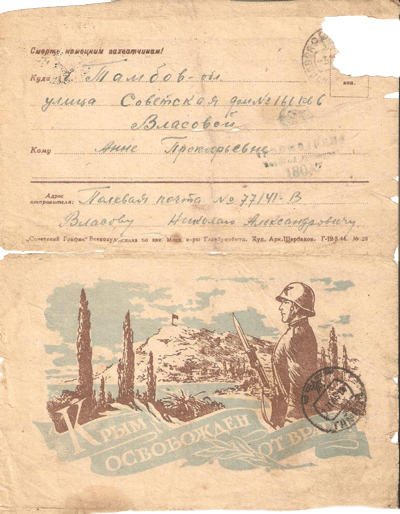 Смерть немецким захватчикам!
Куда Тамбов-ой
улица Советская дом № 161 кв 6
Власовой
Кому Анне Прокофьевне
Адрес
отправителя: Полевая почта № 77141-В
Власову Николаю Александровичу
"Советский График" Худ. Арк. Щербаков. Г-19-5-44. № 28
КРЫМ
ОСВОБОЖДЕН
ОТ